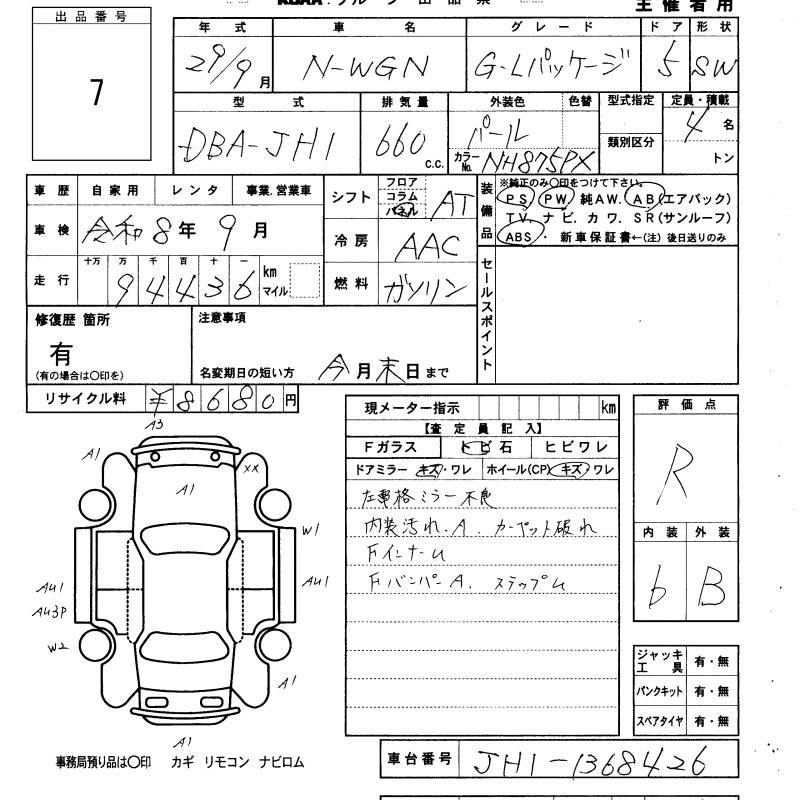 主催者用
出品番号
7
年式 車名 グレード ドア 形状
29/9月 N-WGN G・Lパッケージ 5 SW
型式 排気量 外装色 色替 型式指定 定員・積載
DBA-JH1 660 c.c. パール 類別区分 4名
カラーNo. NH875PX トン
車歴 自家用 レンタ 事業.営業車
車検 令和8年 9月
走行 十万 万 千 百 十 一 km マイル
94436
シフト フロア コラム パネル AT
冷房 AAC
燃料 ガソリン
装備品 ※純正のみ〇印をつけて下さい。
PS PW 純AW. AB(エアバック)
TV. ナビ. カワ. SR(サンルーフ)
ABS ・ 新車保証書←(注)後日送りのみ
セールスポイント
修復歴 箇所
有
(有の場合は〇印を)
注意事項
名変期日の短い方 今月末日まで
リサイクル料 ¥8680円
現メーター指示 km
【査定員記入】
Fガラス トビ石 ヒビワレ
ドアミラー キズ・ワレ ホイール(CP) キズ・ワレ
内装汚れ.A. カーペット破れ
FインナーU
FバンパーA. ステップU
評価点
R
内装 外装
6 B
A3
A1
XX
A1
W1
AU1
AU1
AU3P
W2
A1
A1
ジャッキ工具 有・無
パンクキット 有・無
スペアタイヤ 有・無
事務局預り品は〇印 カギ リモコン ナビロム
車台番号 JH1-1368426